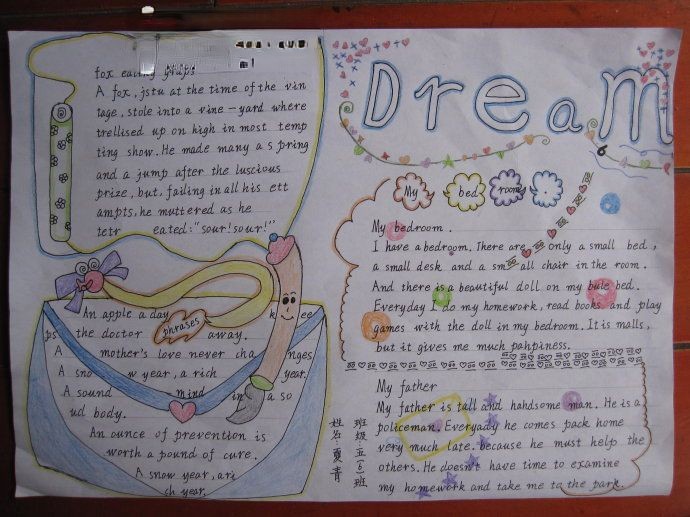 fox eating graps
A fox, jstu at the time of the vin
tage, stole into a vine-yard where
trellised up on high in most temp
ting show. He made many a s pring
and a jump after the luscious
prize, but, failing in all his ett
ampts, he muttered as he
tetr eated: "sour! sour!"
phrases
An apple a day k ee
ps the doctor away.
A mother's love never cha nges
A sno w year, a rich year.
A sound mind in a so
ud body.
An ounce of prevention is
worth a pound of cure.
A snow year, a ri
ch year.
Dream
My bed room .
My bedroom.
I have a bedroom. There are only a small bed,
a small desk and a small chair in the room.
And there is a beautiful doll on my bule bed.
Everyday I do my homework, read books and play
games with the doll in my bedroom. It is malls,
but it gives me much pahpiness.
My father
My father is tall and handsome man. He is a
policeman. Everyady he comes pack home
very much late. because he must help the
others. He doesn't have time to examine
my homework and take me to the park.
班级:五(6)班
姓名:夏青